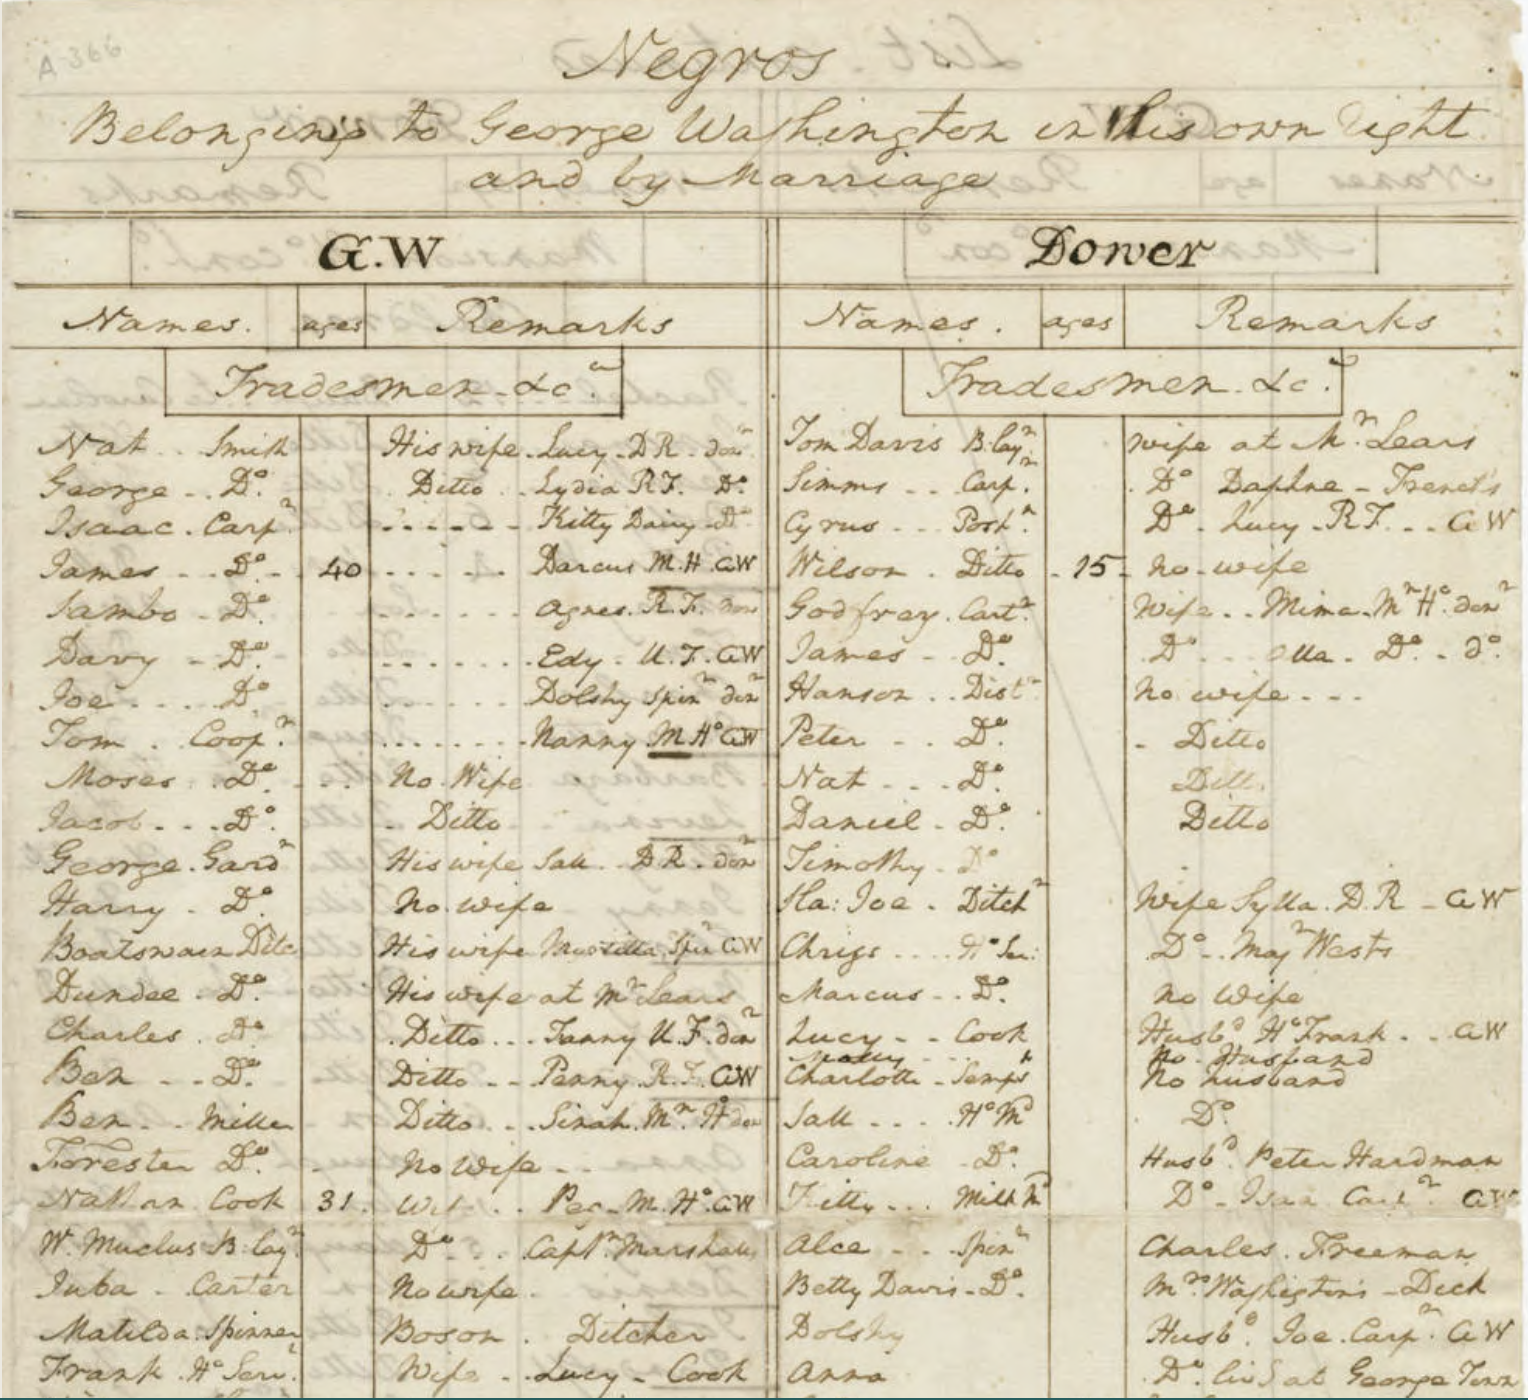 A 366
Negros
Belonging to George Washington in his own right
and by Marriage
G.W Dower
Names. ages Remarks Names. ages Remarks
Tradesmen &c. Tradesmen &c.
Nat .. Smith His wife - Lucy - D R - dowr Tom Davis B.layr wife at Mr. Lears
George .. Do. Ditto .. Lydia R.F. Do. Simms .. Carpr. Do Daphne - French's
Isaac . Carpr - - - - - Kitty Dairy - Do Cyrus ... Postn Do. Lucy - R F. .. G W
James .. Do. 40 . . . . . Darcus M. H. GW Wilson . Ditto 15 no wife
Sambo - Do. . . . . . . Agnes. R. F. dowr Godfrey. Cartr. Wife .. Mima. Mn Ho. dowr
Davy - Do. . . . . . . Edy - U. F. GW James - Do. Do ... Alla - Do. - do.
Joe .... Do . . . . . . Dolshy Spinr dowr Hanson .. Distr no wife ...
Tom . Coopr. . . . . . . . Nanny M Ho GW Peter - .. Do. - Ditto
Moses . Do. ... No Wife Nat ... Do. Ditto
Jacob ... Do. Ditto Daniel - Do. Ditto
George. Gardr His wife Sall .. D R - dowr Timothy - Do
Harry - Do. No wife Ha: Joe - Ditchr Wife Sylla. D. R - G W
Boatswain Ditc His wife Spinr GW Chrigs .... Ho Ser: Do .. Majr Wests
Dundee - Do. His wife at Mr Lears Marcus .. Do. no Wife
Charles . Do. Ditto ... Fanny U. F. dowr Lucy - - Cook Husbd Ho Frank .. GW
Molly ... No Husband
Ben .. Do. Ditto .. Penny. R. F. GW Charlotte - Sempsr No husband
Ben .. Miller Ditto ... Sinah. Mn. Ho dowr Sall .... Ho Md Do.
Forester Do. No Wife .. Caroline - Do. Husbd. Peter Hardman
Nathan Cook 31. Wife .. Peg - M. Ho. GW Kitty ... Milk Md Do - Isaac Carpr. GW
W. Muclus B.layr. Do. .. Captn. Marshalls Alce .. Spinr Charles. Freeman
Juba - Carter No wife. Betty Davis - Do. Mrs. Washington's - Dick
Matilda Spinner Boson. Ditcher Dolshy Husbd. Joe. Carpr. GW
Frank Ho Servt. Wife .. Lucy - Cook Anna Do. livs at George Town